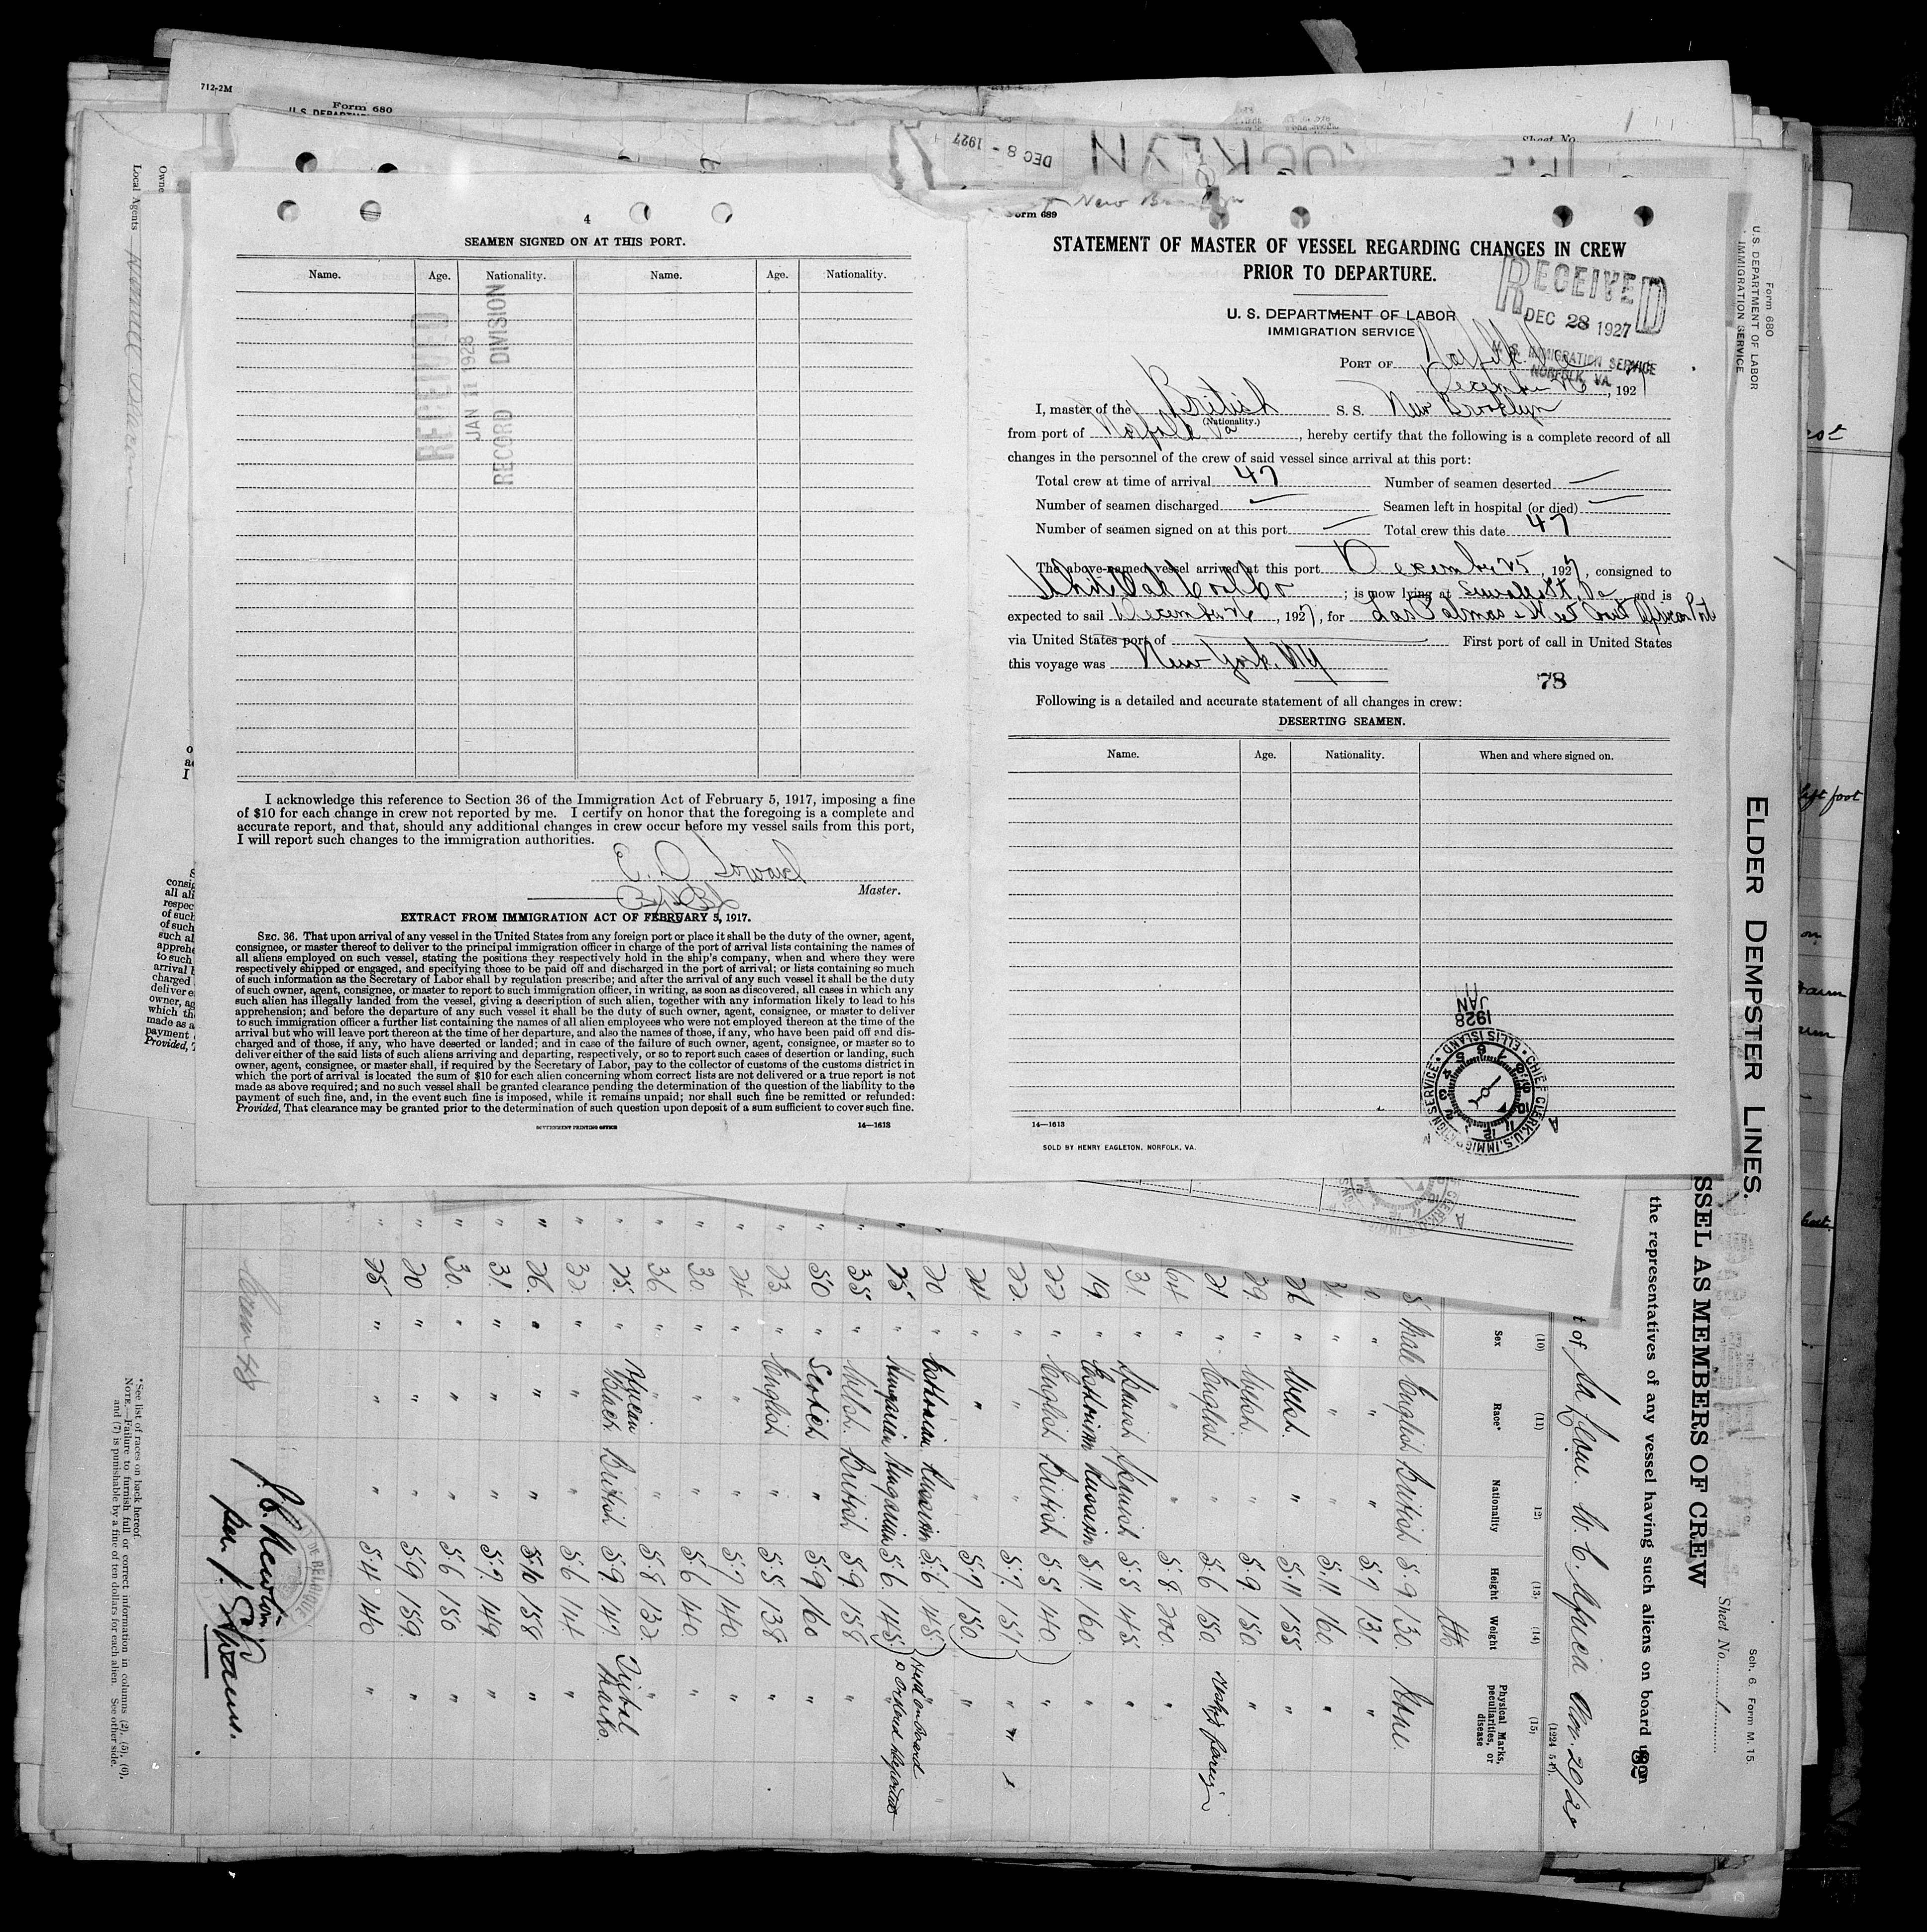 712-2M
Form 680
DEC 8 - 1927
Sheet No
New Brooklyn
Local Agents
4
SEAMEN SIGNED ON AT THIS PORT.
Name. Age. Nationality. Name. Age. Nationality.
RECEIVED
JAN 11 1928
RECORD DIVISION
I acknowledge this reference to Section 36 of the Immigration Act of February 5, 1917, imposing a fine
of $10 for each change in crew not reported by me. I certify on honor that the foregoing is a complete and
accurate report, and that, should any additional changes in crew occur before my vessel sails from this port,
I will report such changes to the immigration authorities.
Master.
EXTRACT FROM IMMIGRATION ACT OF FEBRUARY 5, 1917.
SEC. 36. That upon arrival of any vessel in the United States from any foreign port or place it shall be the duty of the owner, agent,
consignee, or master thereof to deliver to the principal immigration officer in charge of the port of arrival lists containing the names of
all aliens employed on such vessel, stating the positions they respectively hold in the ship's company, when and where they were
respectively shipped or engaged, and specifying those to be paid off and discharged in the port of arrival; or lists containing so much
of such information as the Secretary of Labor shall by regulation prescribe; and after the arrival of any such vessel it shall be the duty
of such owner, agent, consignee, or master to report to such immigration officer, in writing, as soon as discovered, all cases in which any
such alien has illegally landed from the vessel, giving a description of such alien, together with any information likely to lead to his
apprehension; and before the departure of any such vessel it shall be the duty of such owner, agent, consignee, or master to deliver
to such immigration officer a further list containing the names of all alien employees who were not employed thereon at the time of the
arrival but who will leave port thereon at the time of her departure, and also the names of those, if any, who have been paid off and dis-
charged and of those, if any, who have deserted or landed; and in case of the failure of such owner, agent, consignee, or master so to
deliver either of the said lists of such aliens arriving and departing, respectively, or so to report such cases of desertion or landing, such
owner, agent, consignee, or master shall, if required by the Secretary of Labor, pay to the collector of customs of the customs district in
which the port of arrival is located the sum of $10 for each alien concerning whom correct lists are not delivered or a true report is not
made as above required; and no such vessel shall be granted clearance pending the determination of the question of the liability to the
payment of such fine, and, in the event such fine is imposed, while it remains unpaid; nor shall such fine be remitted or refunded:
Provided, That clearance may be granted prior to the determination of such question upon deposit of a sum sufficient to cover such fine.
GOVERNMENT PRINTING OFFICE
14—1613
Form 689
STATEMENT OF MASTER OF VESSEL REGARDING CHANGES IN CREW
PRIOR TO DEPARTURE.
RECEIVED
DEC 28 1927
U. S. IMMIGRATION SERVICE
NORFOLK, VA.
U. S. DEPARTMENT OF LABOR
IMMIGRATION SERVICE
PORT OF Norfolk Va
December 26, 1927
I, master of the British S. S. New Brooklyn
(Nationality.)
from port of Norfolk Va, hereby certify that the following is a complete record of all
changes in the personnel of the crew of said vessel since arrival at this port:
Total crew at time of arrival 47 Number of seamen deserted —
Number of seamen discharged — Seamen left in hospital (or died) —
Number of seamen signed on at this port — Total crew this date 47
The above-named vessel arrived at this port December 25, 1927, consigned to
White Oak Coal Co ; is now lying at Sewalls Pt, Va and is
expected to sail December 26, 1927, for Las Palmas & West Coast African Pts
via United States port of — First port of call in United States
this voyage was New York, NY
78
Following is a detailed and accurate statement of all changes in crew:
DESERTING SEAMEN.
Name. Age. Nationality. When and where signed on.
JAN 11
1928
CHIEF CLERK, U.S. IMMIGRATION SERVICE • ELLIS ISLAND
14—1613
SOLD BY HENRY EAGLETON, NORFOLK, VA.
Form 680
U. S. DEPARTMENT OF LABOR
IMMIGRATION SERVICE
ELDER DEMPSTER LINES.
SSEL AS MEMBERS OF CREW
Sheet No. 1
Sch. 6. Form M. 15.
the representatives of any vessel having such aliens on board upon
(10) (11) (12) (13) (14) (15)
Sex Race* Nationality Height Weight Physical Marks, peculiarities, or disease
Male English British 5.9 130. None.
" " " 5.7 131 "
" " " 5.11 160. "
26 " Welsh. " 5.11 155 "
29. " Welsh. " 5.9 150 "
21 " English " 5.6 150.
64 " " " 5.8 200. "
31. " Spanish Spanish 5.5 145. "
19 " Esthonian Russian 5.11. 160. "
22 " English British 5.5 140. "
22. " " " 5.7. 151 "
21 " " " 5.7 150 "
20 " Esthonian Russian 5.6 145.
25 " Hungarian Hungarian 5.6. 145.
Held on board
& Ordered Deported
35 " Welsh. British 5.9 158 "
50 " Scotch " 5.9 160 "
23 " English " 5.5 138 "
24. " " " 5.7 140. "
30. " " " 5.6 140 "
36 " " " 5.8 132. "
25. " African Black British 5.9. 147. Tribal Marks.
32. " " " 5.6 141 "
26. " " " 5.10 158 "
31. " " " 5.7. 149. "
30. " " " 5.6 150 "
20 " " " 5.9 159. "
25 " " " 5.4 140 "
J. C. Newton
per.
DE BELGIQUE
*See list of races on back hereof.
NOTE.—Failure to furnish full or correct information in columns (2), (5), (6),
and (7) is punishable by a fine of ten dollars for each alien. See other side.
left foot